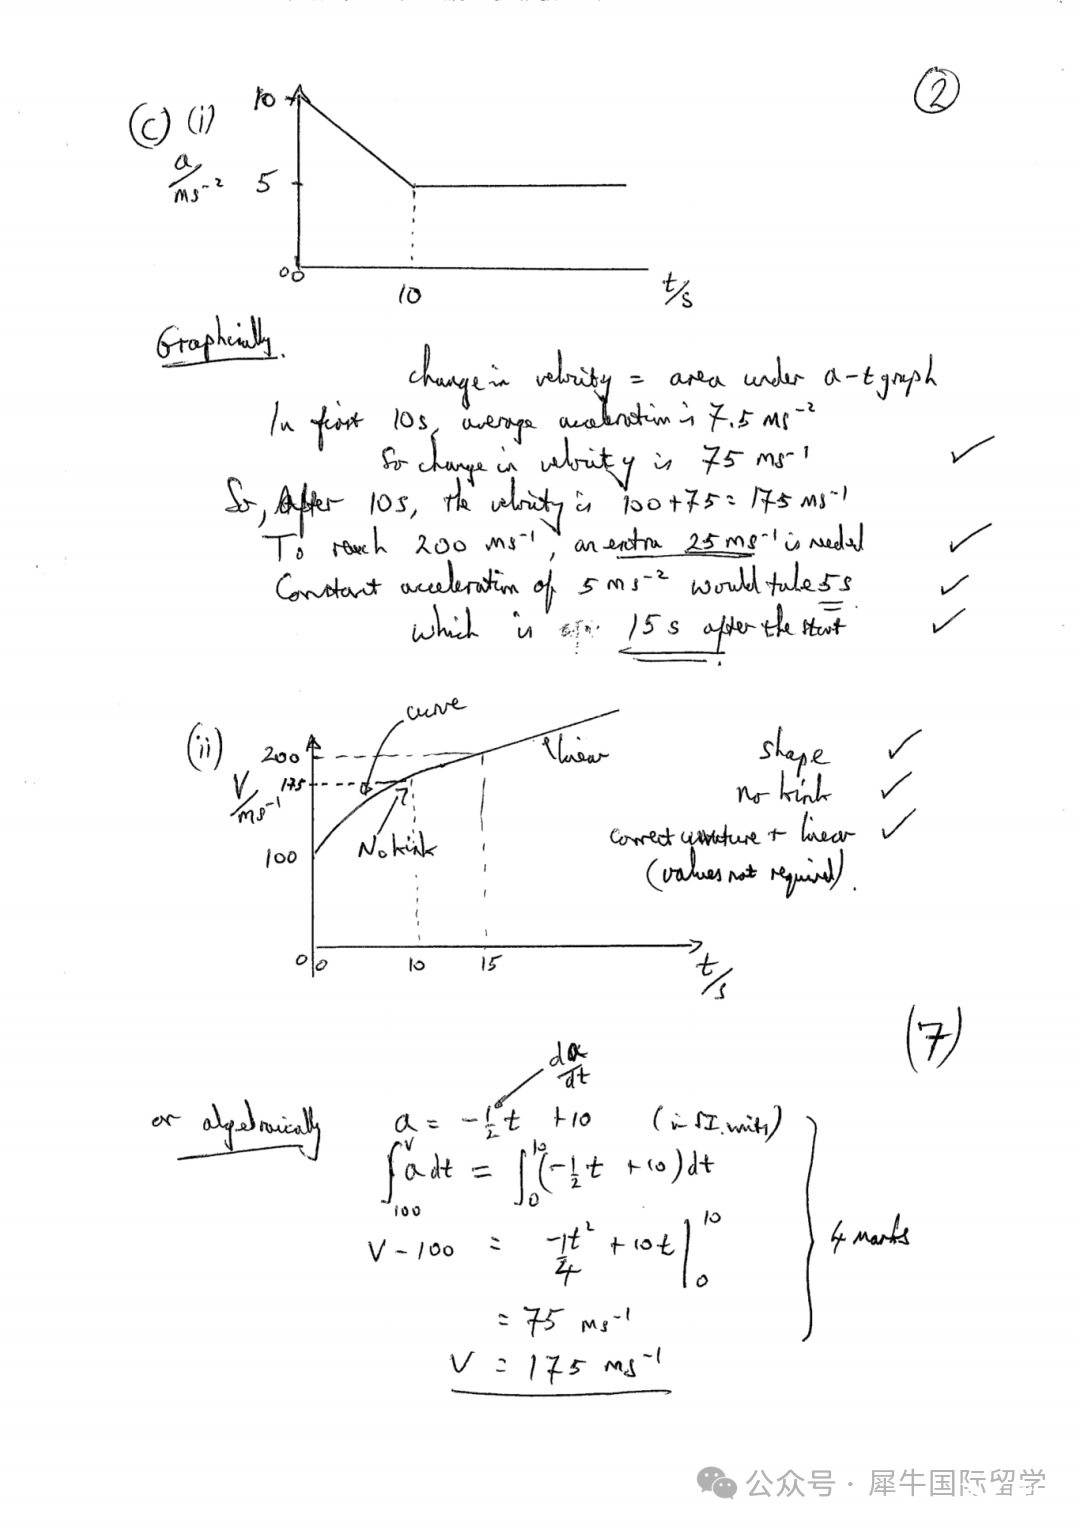 ②
(c) (i)
a/ms⁻²
10
5
0 0
10
t/s
Graphically.
Change in velocity = area under a-t graph
In first 10s, average acceleration is 7.5 ms⁻²
So change in velocity is 75 ms⁻¹ ✓
So, After 10s, the velocity is 100+75 = 175 ms⁻¹
To reach 200 ms⁻¹, an extra 25 ms⁻¹ is needed ✓
Constant acceleration of 5 ms⁻² would take 5s ✓
which is 15 s after the start ✓
(ii)
V/ms⁻¹
curve
200
175
100
linear
No kink
0 0
10
15
t/s
shape ✓
no kink ✓
correct curvature + linear ✓
(values not required).
(7)
or algebraically
da/dt
a = -½t + 10 (in SI units)
∫₁₀₀ⱽ a dt = ∫₀¹⁰ (-½t + 10) dt
V - 100 = -¼t² + 10t |₀¹⁰
= 75 ms⁻¹
V = 175 ms⁻¹
4 marks
公众号 · 犀牛国际留学